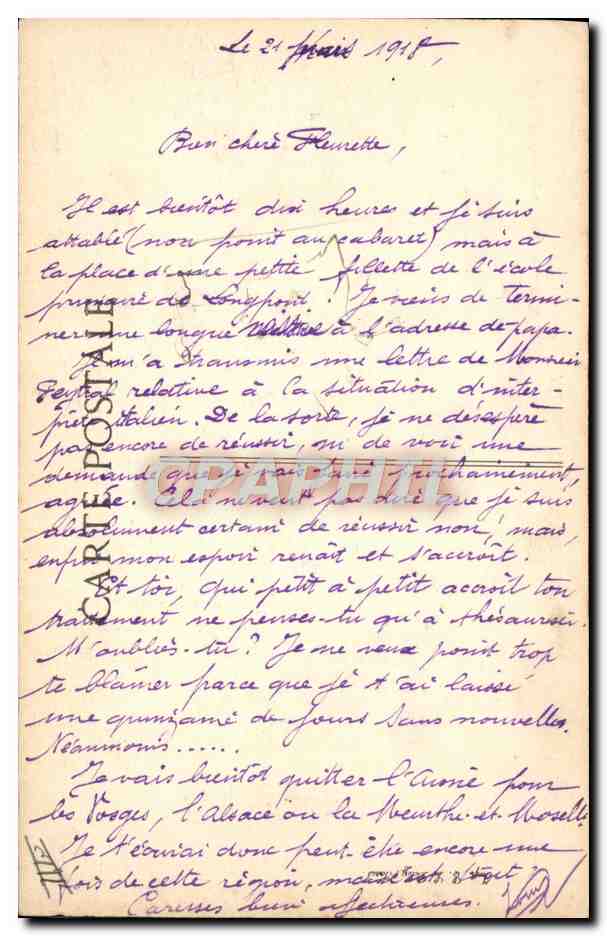 Le 21 Mars 1918,
Bien chère Fleurette,
Il est bientôt dix heures et je suis
attablé (non point au cabaret) mais à
la place d'une petite fillette de l'école
primaire de Longpont. Je viens de termi-
ner une longue à l'adresse de papa.
Il m'a transmis une lettre de Monsieur
Peytral relative à la situation d'inter-
prète italien. De la sorte, je ne désespère
pas encore de réussir, ni de voir une
demande que je vais faire prochainement,
agréée. Cela ne veut pas dire que je suis
absolument certain de réussir non, mais,
enfin mon espoir renaît et s'accroît.
Et toi, qui petit à petit accroît ton
traitement ne penses-tu qu'à thésauriser.
M'oublies-tu? Je ne veux point trop
te blâmer parce que je t'ai laissé
une quinzaine de jours sans nouvelles.
Néanmoins......
Je vais bientôt quitter l'Aisne pour
les Vosges, l'Alsace ou la Meurthe-et-Moselle
Je t'écrirai donc peut-être encore une
fois de cette région, mais
Caresses bien affectueuses.
CARTE POSTALE
CPAPHIL